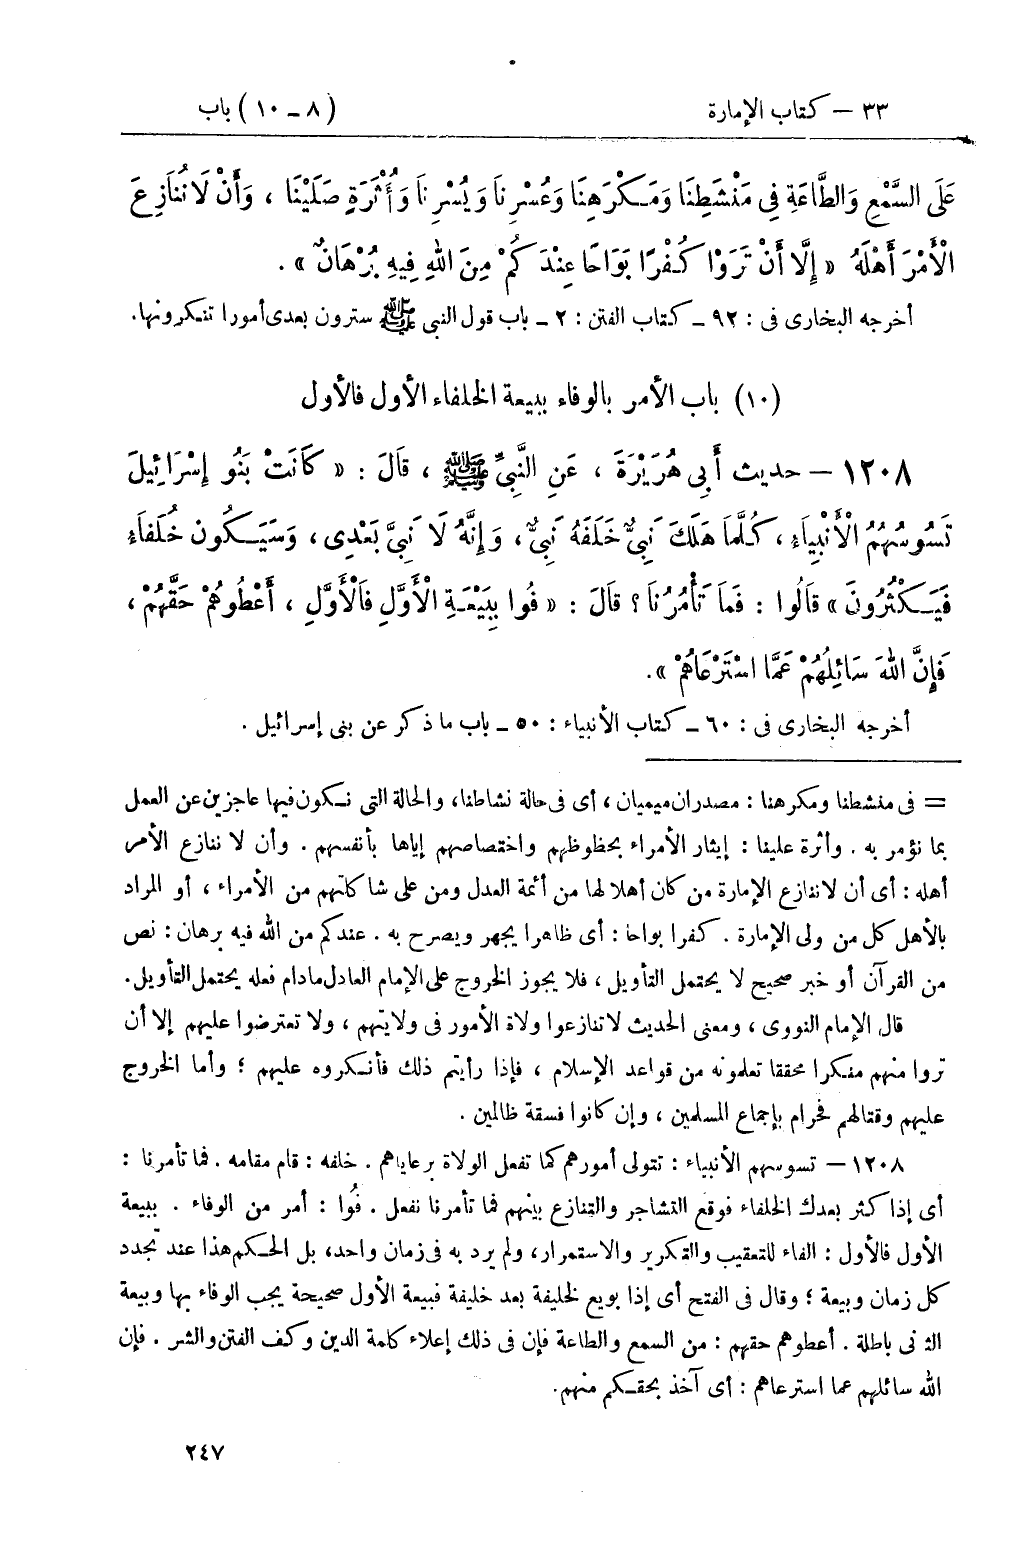 ٣٣ — كتاب الإمارة (٨ ــ ١٠) باب
عَلَى السَّمْعِ وَالطَّاعَةِ فِى مَنْشَطِنَا وَمَكْرَهِنَا وَعُسْرِنَا وَيُسْرِنَا وَأُثْرَةٍ عَلَيْنَا ، وَأَنْ لَا نُنَازِعَ
الْأَمْرَ أَهْلَهُ « إِلَّا أَنْ تَرَوْا كُفْرًا بَوَاحًا عِنْدَكُمْ مِنَ اللهِ فِيهِ بُرْهَانٌ » .
أخرجه البخارى فى : ٩٢ ــ كتاب الفتن : ٢ ــ باب قول النبى ﷺ سترون بعدى أمورا تنكرونها.
(١٠) باب الأمر بالوفاء ببيعة الخلفاء الأول فالأول
١٢٠٨ — حديث أَبِى هُرَيْرَةَ ، عَنِ النَّبِىِّ ﷺ ، قَالَ : « كَانَتْ بَنُو إِسْرَائِيلَ
تَسُوسُهُمُ الْأَنْبِيَاءِ ، كُلَّمَا هَلَكَ نَبِىٌّ خَلَفَهُ نَبِىٌّ ، وَإِنَّهُ لَا نَبِىَّ بَعْدِى ، وَسَيَكُونُ خُلَفَاءُ
فَيَكْثُرُونَ » قَالُوا : فَمَا تَأْمُرُنَا ؟ قَالَ : « فُوا بِبَيْعَةِ الْأَوَّلِ فَالْأَوَّلِ ، أَعْطُوهُمْ حَقَّهُمْ ،
فَإِنَّ اللهَ سَائِلُهُمْ عَمَّا اسْتَرْعَاهُمْ » .
أخرجه البخارى فى : ٦٠ ــ كتاب الأنبياء : ٥٠ ــ باب ما ذكر عن بنى إسرائيل .
= فى منشطنا ومكرهنا : مصدران ميميان ، أى فى حالة نشاطنا ، والحالة التى نكون فيها عاجزين عن العمل
بما نؤمر به . وأثرة علينا : إيثار الأمراء بحظوظهم واختصاصهم إياها بأنفسهم . وأن لا ننازع الأمر
أهله : أى أن لا ننازع الإمارة من كان أهلا لها من أئمة العدل ومن على شاكلتهم من الأمراء ، أو المراد
بالأهل كل من ولى الإمارة . كفرا بواحا : أى ظاهرا يجهر ويصرح به . عندكم من الله فيه برهان : نص
من القرآن أو خبر صحيح لا يحتمل التأويل ، فلا يجوز الخروج على الإمام العادل مادام فعله يحتمل التأويل .
قال الإمام النووى ، ومعنى الحديث لا تنازعوا ولاة الأمور فى ولايتهم ، ولا تعترضوا عليهم إلا أن
تروا منهم منكرا محققا تعلمونه من قواعد الإسلام ، فإذا رأيتم ذلك فأنكروه عليهم ؛ وأما الخروج
عليهم وقتالهم فحرام بإجماع المسلمين ، وإن كانوا فسقة ظالمين .
١٢٠٨ — تسوسهم الأنبياء : تتولى أمورهم كما تفعل الولاة برعاياهم . خلفه : قام مقامه . فما تأمرنا :
أى إذا كثر بعدك الخلفاء فوقع التشاجر والتنازع بينهم فما تأمرنا نفعل . فُوا : أمر من الوفاء . ببيعة
الأول فالأول : الفاء للتعقيب والتكرير والاستمرار ، ولم يرد به فى زمان واحد ، بل الحكم هذا عند تجدد
كل زمان وبيعة ؛ وقال فى الفتح أى إذا بويع لخليفة بعد خليفة فبيعة الأول صحيحة يجب الوفاء بها وبيعة
الثانى باطلة . أعطوهم حقهم : من السمع والطاعة فإن فى ذلك إعلاء كلمة الدين وكف الفتن والشر . فإن
الله سائلهم عما استرعاهم : أى آخذ بحقكم منهم .
٢٤٧